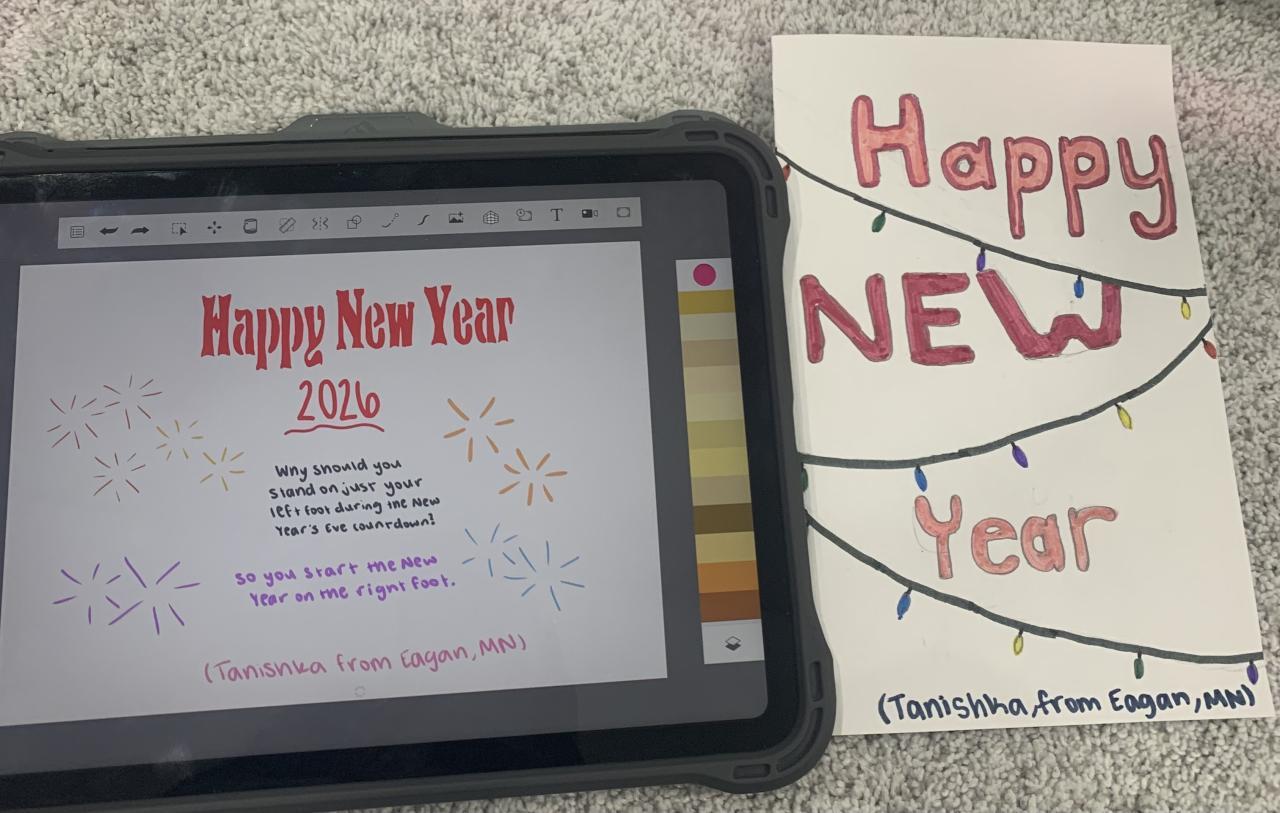 Happy New Year
2026
Why should you
stand on just your
left foot during the New
Year's Eve countdown?
So you start the New
Year on the right foot.
(Tanishka from Eagan, MN)
T
Happy
NEW
Year
(Tanishka, from Eagan, MN)